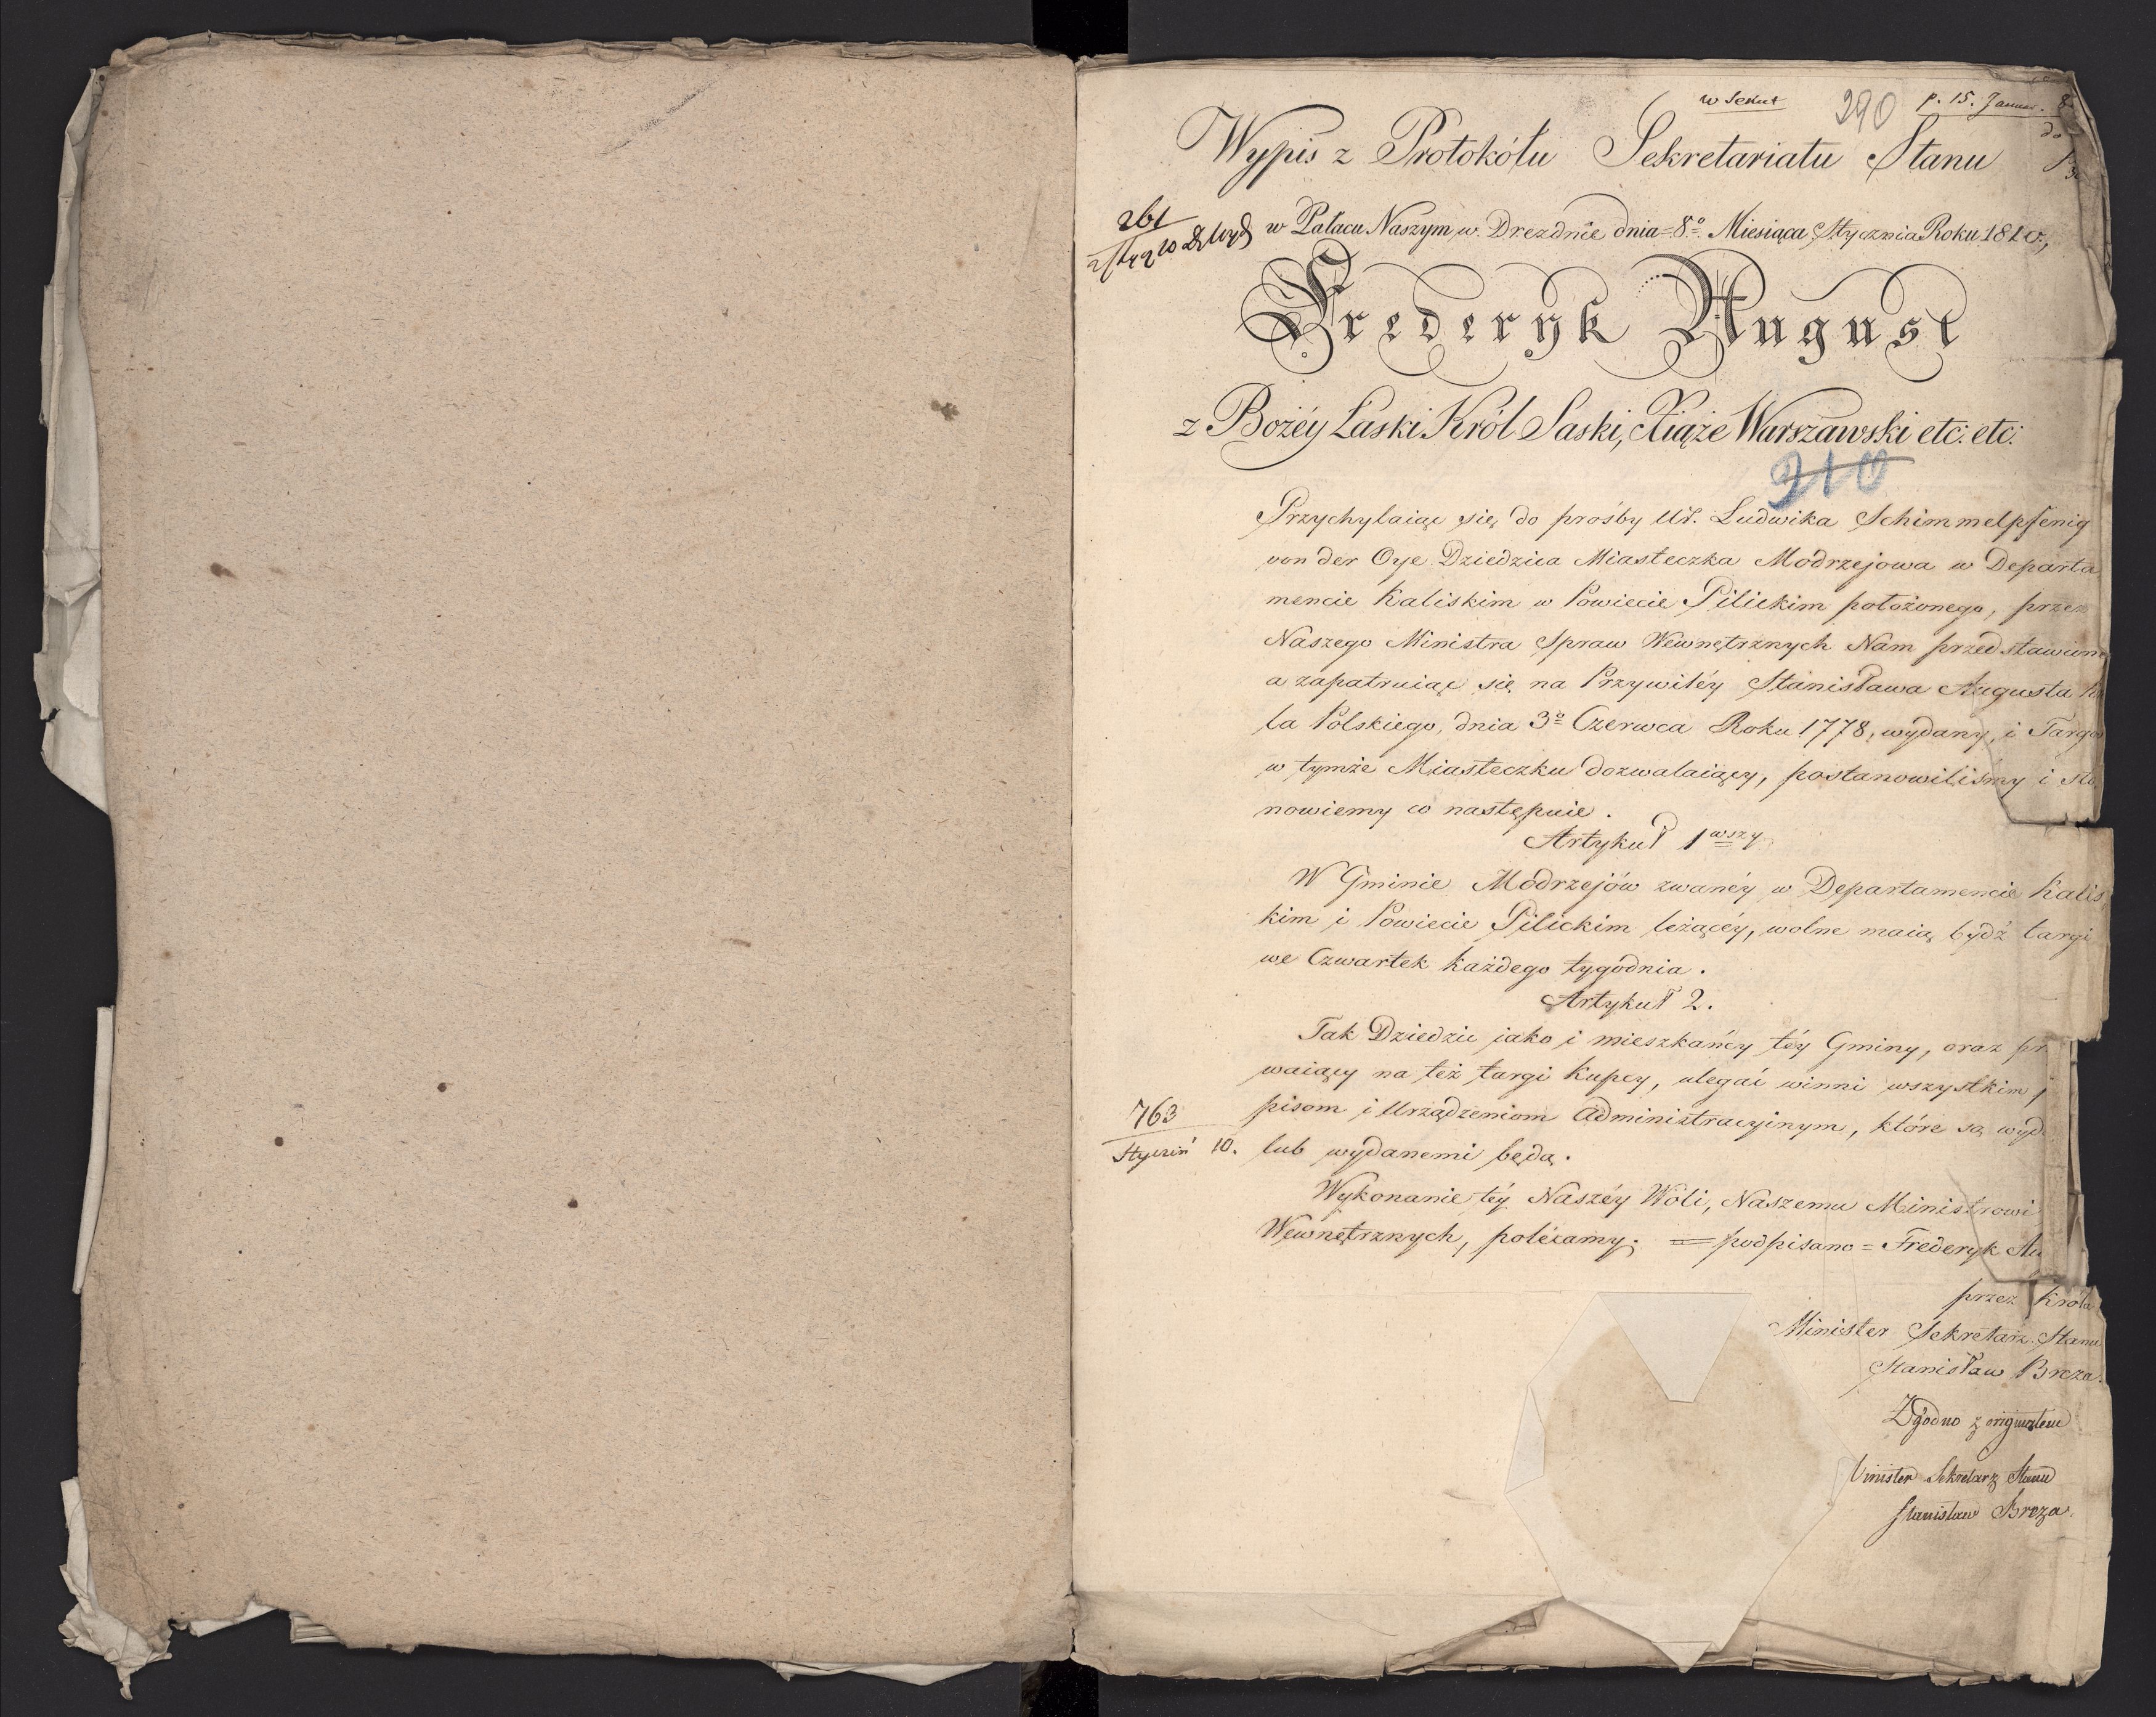 w Sekret
290
p. 15. Januar. 8
do
Wypis z Protokółu Sekretariatu Stanu
261
w Pałacu Naszym w Dreznie dnia 8º Miesiąca Stycznia Roku 1810,
Frederyk August
z Bożéy Łaski Król Saski, Xiąże Warszawski etc: etc:
210
Przychylaiąc się do prośby Ur. Ludwika Schimmelpfenig
von der Oye Dziedzica Miasteczka Modrzejowa w Departa
mencie Kaliskim w Powiecie Pilickim położonego, przez
Naszego Ministra Spraw Wewnętrznych Nam przedstawion
a zapatruiąc się na Przywiléy Stanisława Augusta K
la Polskiego, dnia 3º Czerwca Roku 1778, wydany, i Targo
w tymże Miasteczku dozwalaiący, postanowiliśmy i sta
nowiemy co następuie.
Artykuł 1wszy
W Gminie Modrzejów zwanéy w Departamencie Kalis
kim i Powiecie Pilickim leżącéy, wolne maią bydź targi
we Czwartek każdego tygodnia.
Artykuł 2.
Tak Dziedzic jako i mieszkańcy téy Gminy, oraz pr
waiący na też targi Kupcy, ulegać winni wszystkim p
pisom i Urządzeniom Administracyinym, które są wyd
763
Styczń 10.
lub wydanemi będą.
Wykonanie téy Naszéy Woli, Naszemu Ministrowi
Wewnętrznych, polécamy. = podpisano = Frederyk Au
przez Króla
Minister Sekretarz Stanu
Stanisław Breza.
Zgodno z originałem
Minister Sekretarz Stanu
Stanisław Breza